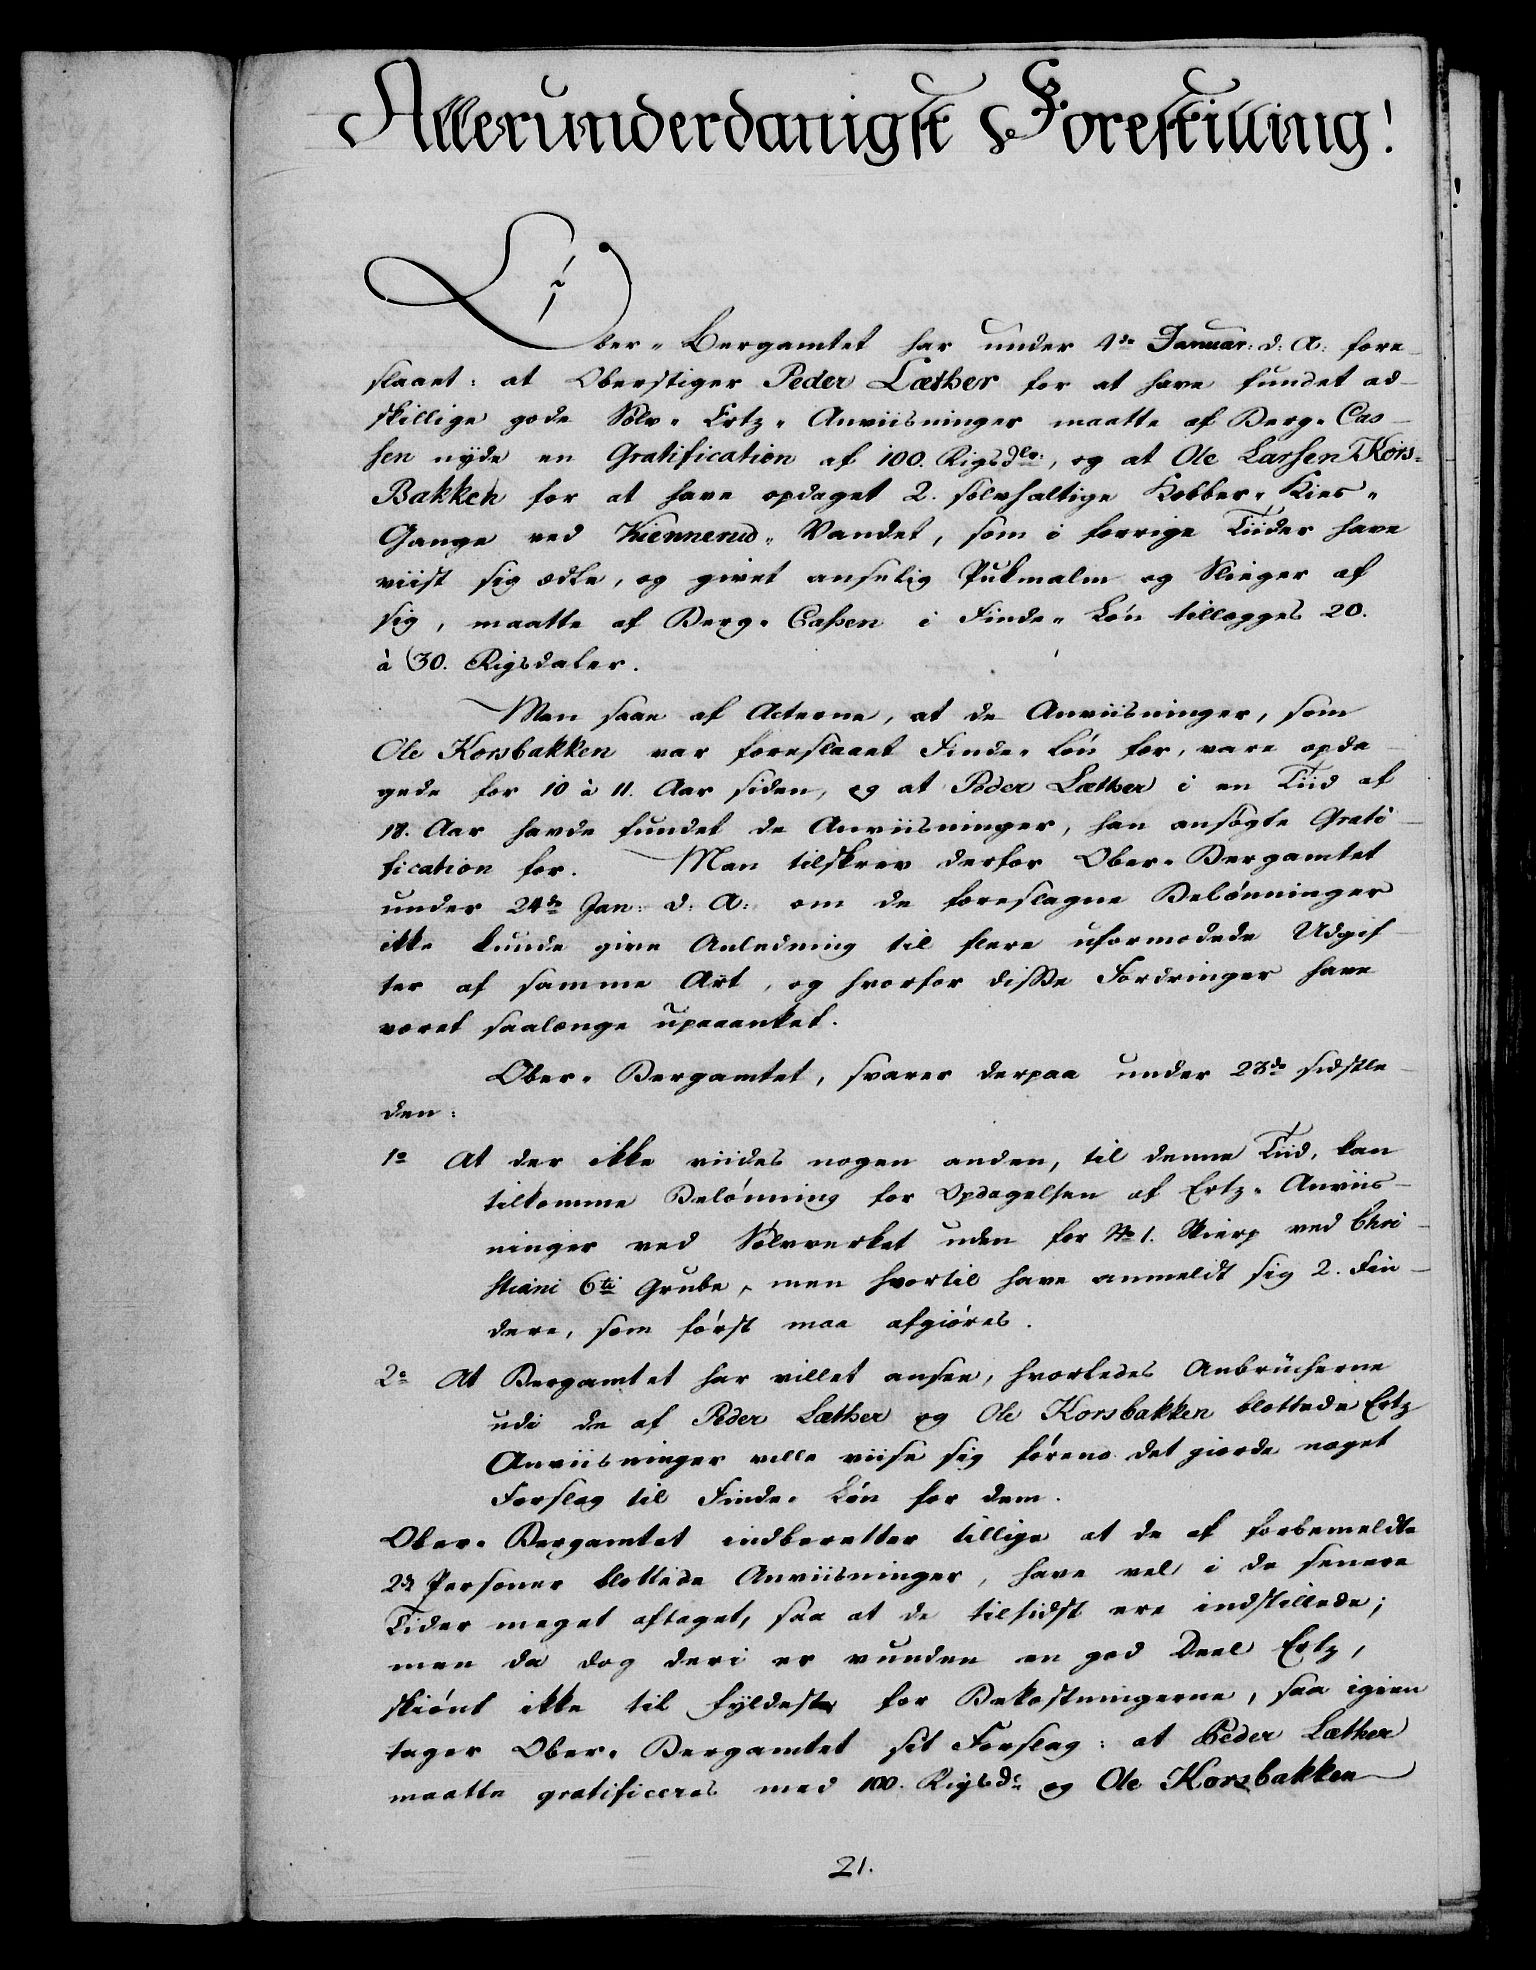 Allerunderdanigst Forestilling!
Ober-Bergamtet har under 4de Januar: d: A: fore-
slaaet: at Oberstiger Peder Læther for at have fundet ad-
skillige gode Sølv- Ertz- Anviisninger maatte af Berg- Cas-
sen nyde en Gratification af 100. Rigsdlr:, og at Ole Larsen Kors-
Bakken for at have opdaget 2. sølvhaltige Kobber- Kies-
Gange ved Kiennerud- Vandet, som i forrige Tiider have
viist sig ædle, og givet anselig Pukmalm og Slieger af
sig, maatte af Berg- Cassen i Finde- Løn tillægges 20.
à 30. Rigsdaler.
Man saae af Acterne, at de Anviisninger, som
Ole Korsbakken var foreslaaet Finde- Løn for, vare opda-
gede for 10 à 11. Aar siden, og at Peder Læther i en Tiid af
18. Aar havde fundet de Anviisninger, han ansøgte Grati-
fication for. Man tilskrev derfor Ober- Bergamtet
under 24de Jan: d: A: om de foreslagne Belønninger
ikke kunde give Anledning til flere uformodede Udgif-
ter af samme Art, og hvorfor disse Fordringer have
været saalænge upaaanket.
Ober- Bergamtet, svarer derpaa under 23de sidstle-
den:
1o At der ikke viides nogen anden, til denne Tiid, kan
tilkomme Belønning for Opdagelsen af Ertz- Anviis-
ninger ved Sølvverket uden for No 1. Skierp ved Chri-
stiani 6ti Grube, men hvortil have anmeldt sig 2. Fin-
dere, som først maa afgiøres.
2o At Bergamtet har villet ansee, hvorledes Anbrücherne
udi de af Peder Læther og Ole Korsbakken blottede Ertz
Anviisninger ville viise sig førend det giorde noget
Forslag til Finde- Løn for dem.
Ober- Bergamtet indberetter tillige at de af forbemeldte
2de Personer blottede Anviisninger, have vel i de senere
Tider meget aftaget, saa at de tilsidst ere indstillede;
men da dog deri er vunden en god Deel Ertz,
skiønt ikke til fyldeste for Bekostningerne, saa igien-
tager Ober- Bergamtet sit Forslag: at Peder Læther
maatte gratificeres med 100. Rigsdr og Ole Korsbakken
21.